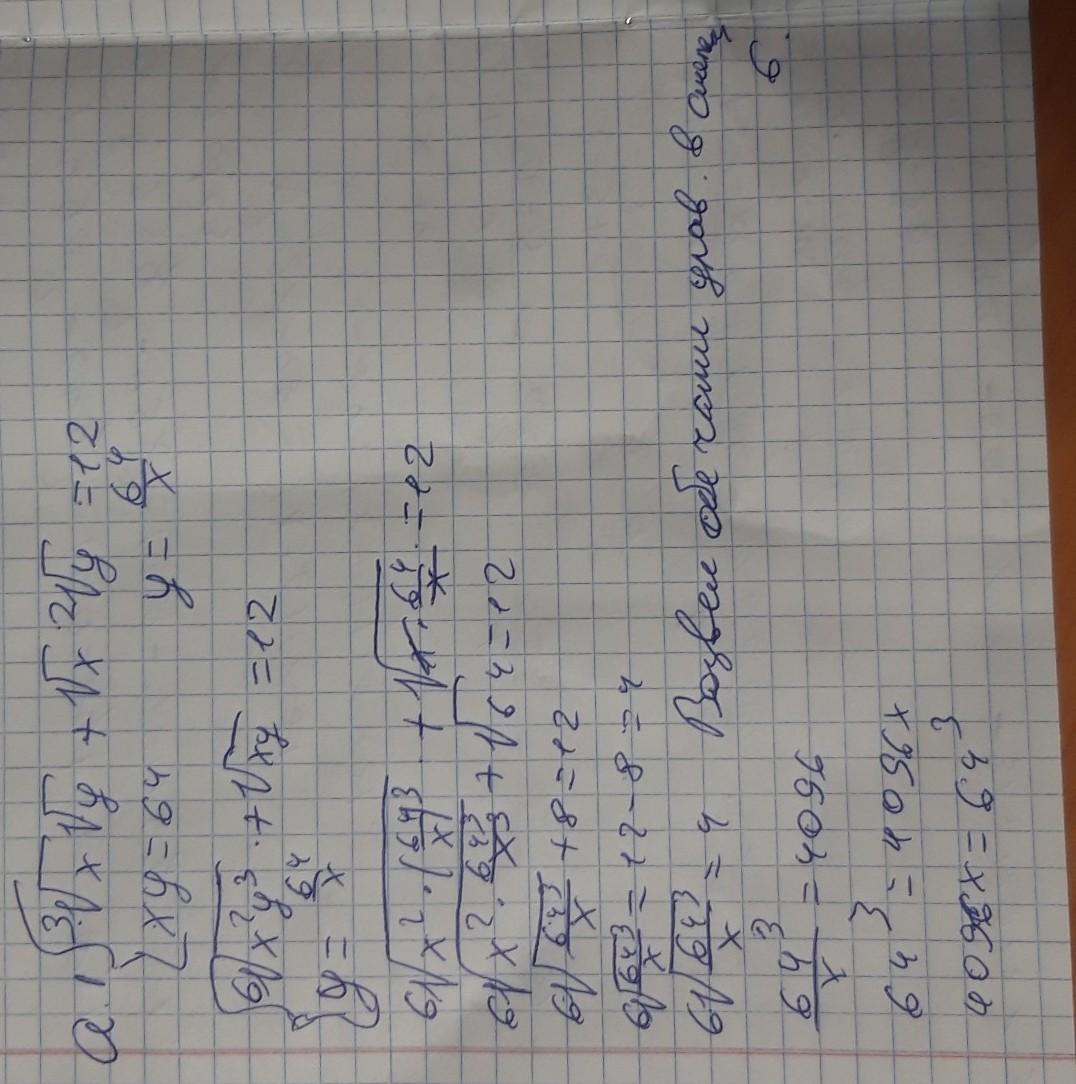 а. { ³√x √y + √x ²√y = 12
xy = 64 y = 64/x
{ ⁶√(x²y³) + √(xy) = 12
y = 64/x
⁶√(x² · (64/x)³) + √(x · 64/x) = 12
⁶√(x² · 64³/x³) + √64 = 12
⁶√(64³/x) + 8 = 12
⁶√(64³/x) = 12 - 8 = 4
⁶√(64³/x) = 4 Возвем обе части урав. в степ
6.
64³/x = 4096
64³ = 4096x
4096x = 64³